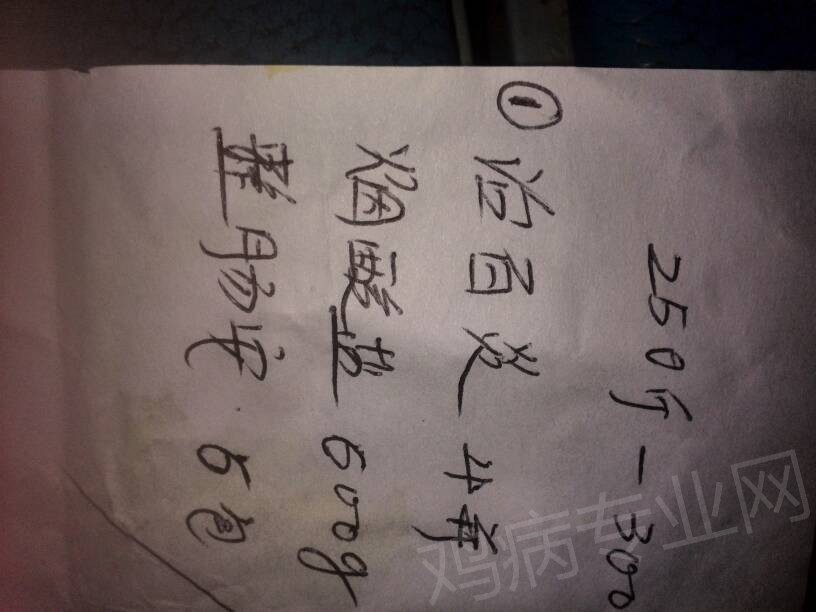 250斤-300
①治百炎
烟酸盐 600g
整肠安 5包
鸡病专业网